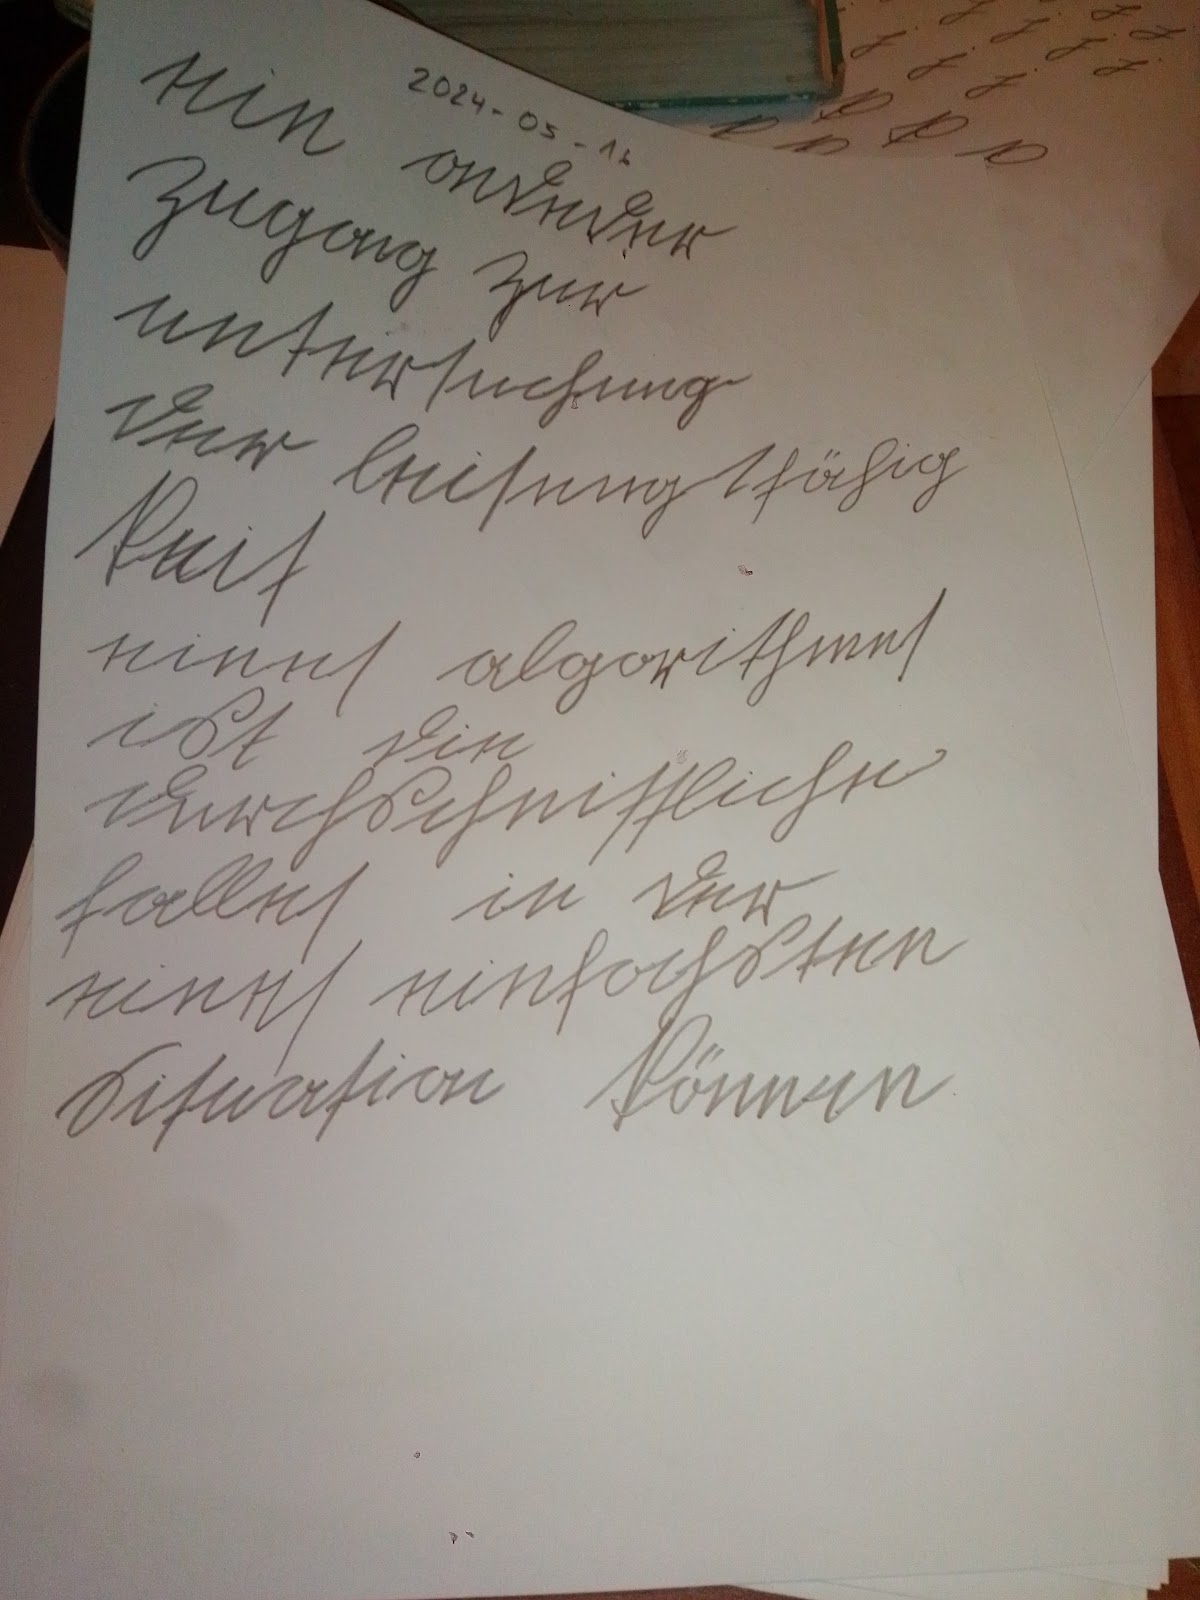 2024-05-16
ein anderer
zugang zur
untersuchung
der leisungsfähig
keit
eines algorithmes
ist die
durchschnittliche
falles in der
eines einfachsten
situation können